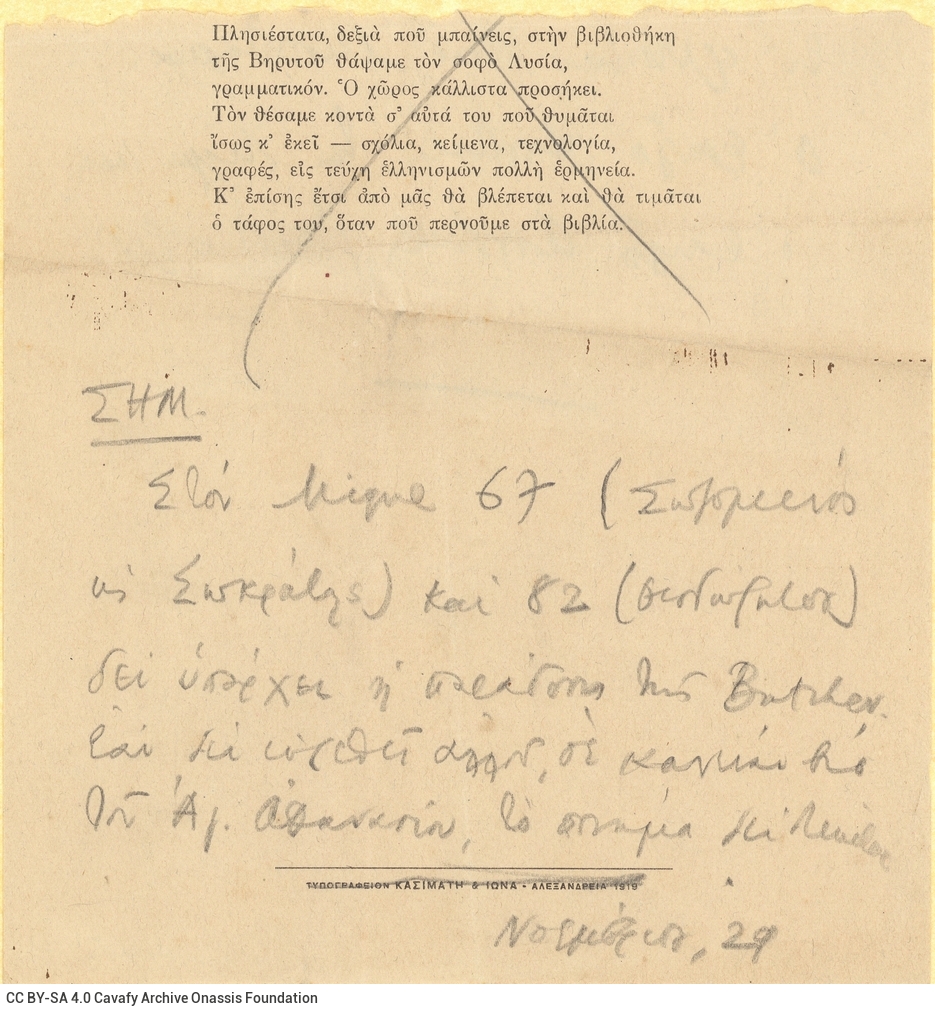 Πλησιέστατα, δεξιὰ ποῦ μπαίνεις, στὴν βιβλιοθήκη
τῆς Βηρυτοῦ θάψαμε τὸν σοφὸ Λυσία,
γραμματικόν. Ὁ χῶρος κάλλιστα προσήκει.
Τὸν θέσαμε κοντὰ σ’ αὐτά του ποῦ θυμᾶται
ἴσως κ’ ἐκεῖ — σχόλια, κείμενα, τεχνολογία,
γραφές, εἰς τεύχη ἑλληνισμῶν πολλὴ ἑρμηνεία.
Κ’ ἐπίσης ἔτσι ἀπὸ μᾶς θὰ βλέπεται καὶ θὰ τιμᾶται
ὁ τάφος του, ὅταν ποῦ περνοῦμε στὰ βιβλία.
ΣΗΜ.
Στὸν Migne 67 (Σωζομενὸς
κς Σωκράτης) καὶ 82 (Θεοδώρητος)
δὲν ὑπάρχει ἡ παράδοσις τῆς Butcher.
Ἐὰν δὲν εὑρεθεῖ ἀλλοῦ, σὲ κανέναν βίο
τοῦ Ἁγ. Ἀθανασίου, τὸ ποίημα δὲν
ΤΥΠΟΓΡΑΦΕΙΟΝ ΚΑΣΙΜΑΤΗ & ΙΩΝΑ - ΑΛΕΞΑΝΔΡΕΙΑ 1919
Νοέμβριος, 29
CC BY-SA 4.0 Cavafy Archive Onassis Foundation